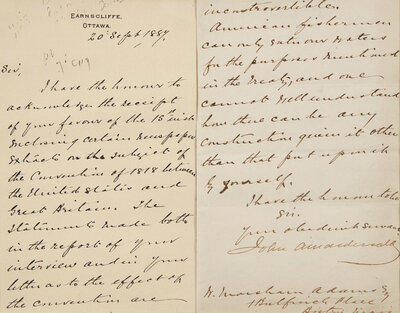 EARNSCLIFFE,
OTTAWA.
20 Sept, 1887.
Sir,
I have the honour to
acknowledge the receipt
of your favour of the 15 inst
inclosing certain newspaper
extracts on the subject of
the Convention of 1818 between
the United States and
Great Britain. The
Statements made both
in the report of your
interview and in your
letter as to the effect of
the convention are
incontrovertible.
American fishermen
can only enter our waters
for the purposes mentioned
in the Treaty, and one
cannot well understand
how there can be any
construction given it other
than that put upon it
by yourself.
I have the honour to be
Sir,
Your obedient servant
John A Macdonald
W. Marsham Adams Esq
1 Bulfinch Place
Boston Mass